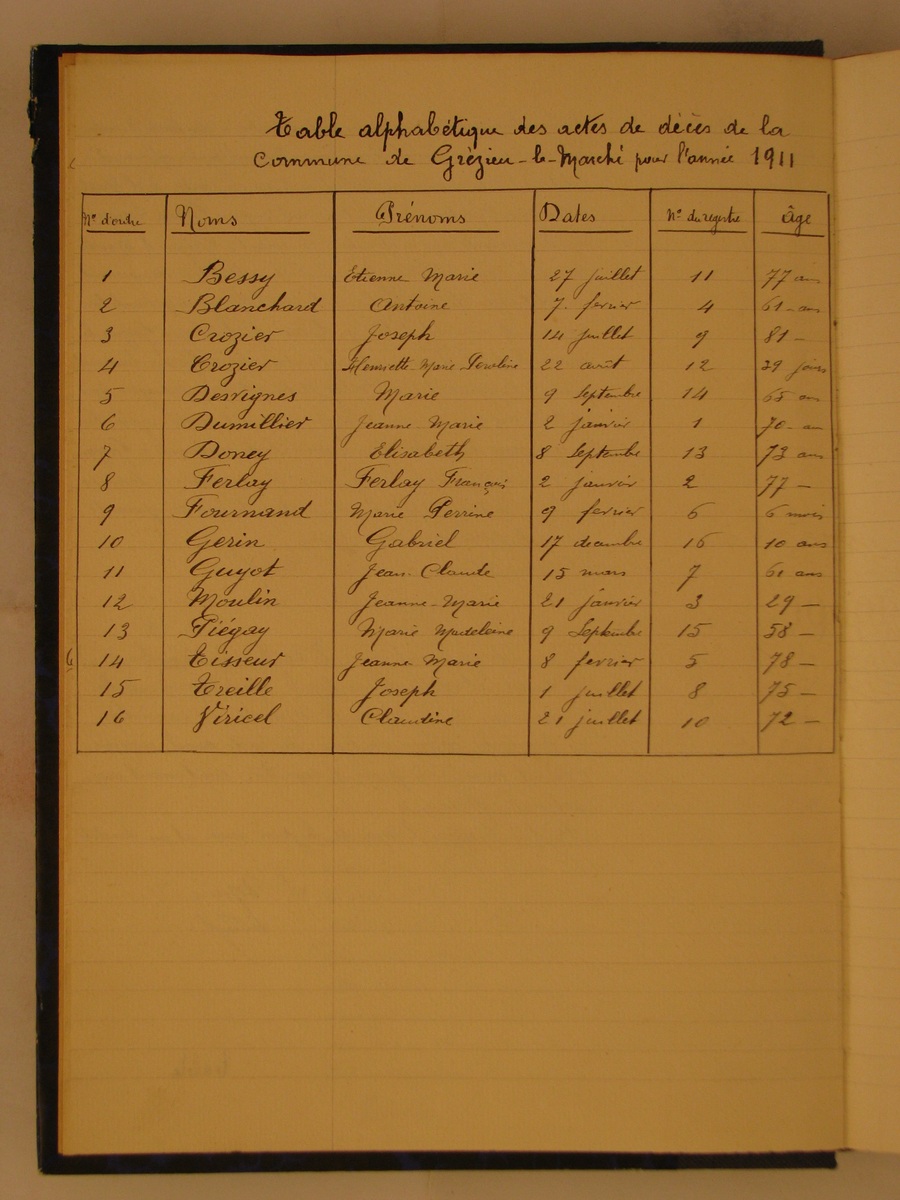 Table alphabétique des actes de décès de la
Commune de Grézieu-le-Marché pour l'année 1911
N° d'ordre Noms Prénoms Dates N° du registre âge
1 Bessy Etienne Marie 27 juillet 11 77 ans
2 Blanchard Antoine 7 fevrier 4 61 ans
3 Crozier Joseph 14 juillet 9 81 —
4 Crozier Henriette Marie Pauline 22 août 12 29 jours
5 Desvignes Marie 9 Septembre 14 65 ans
6 Dumillier Jeanne Marie 2 janvier 1 70 ans
7 Doney Elisabeth 8 Septembre 13 73 ans
8 Ferlay Ferlay François 2 janvier 2 77 —
9 Fournand Marie Perrine 9 fevrier 6 6 mois
10 Gerin Gabriel 17 decembre 16 10 ans
11 Guyot Jean-Claude 15 mars 7 61 ans
12 Moulin Jeanne-Marie 21 janvier 3 29 —
13 Piégay Marie Madeleine 9 Septembre 15 58 —
14 Tisseur Jeanne Marie 8 fevrier 5 78 —
15 Treille Joseph 1 juillet 8 75 —
16 Viricel Claudine 21 juillet 10 72 —